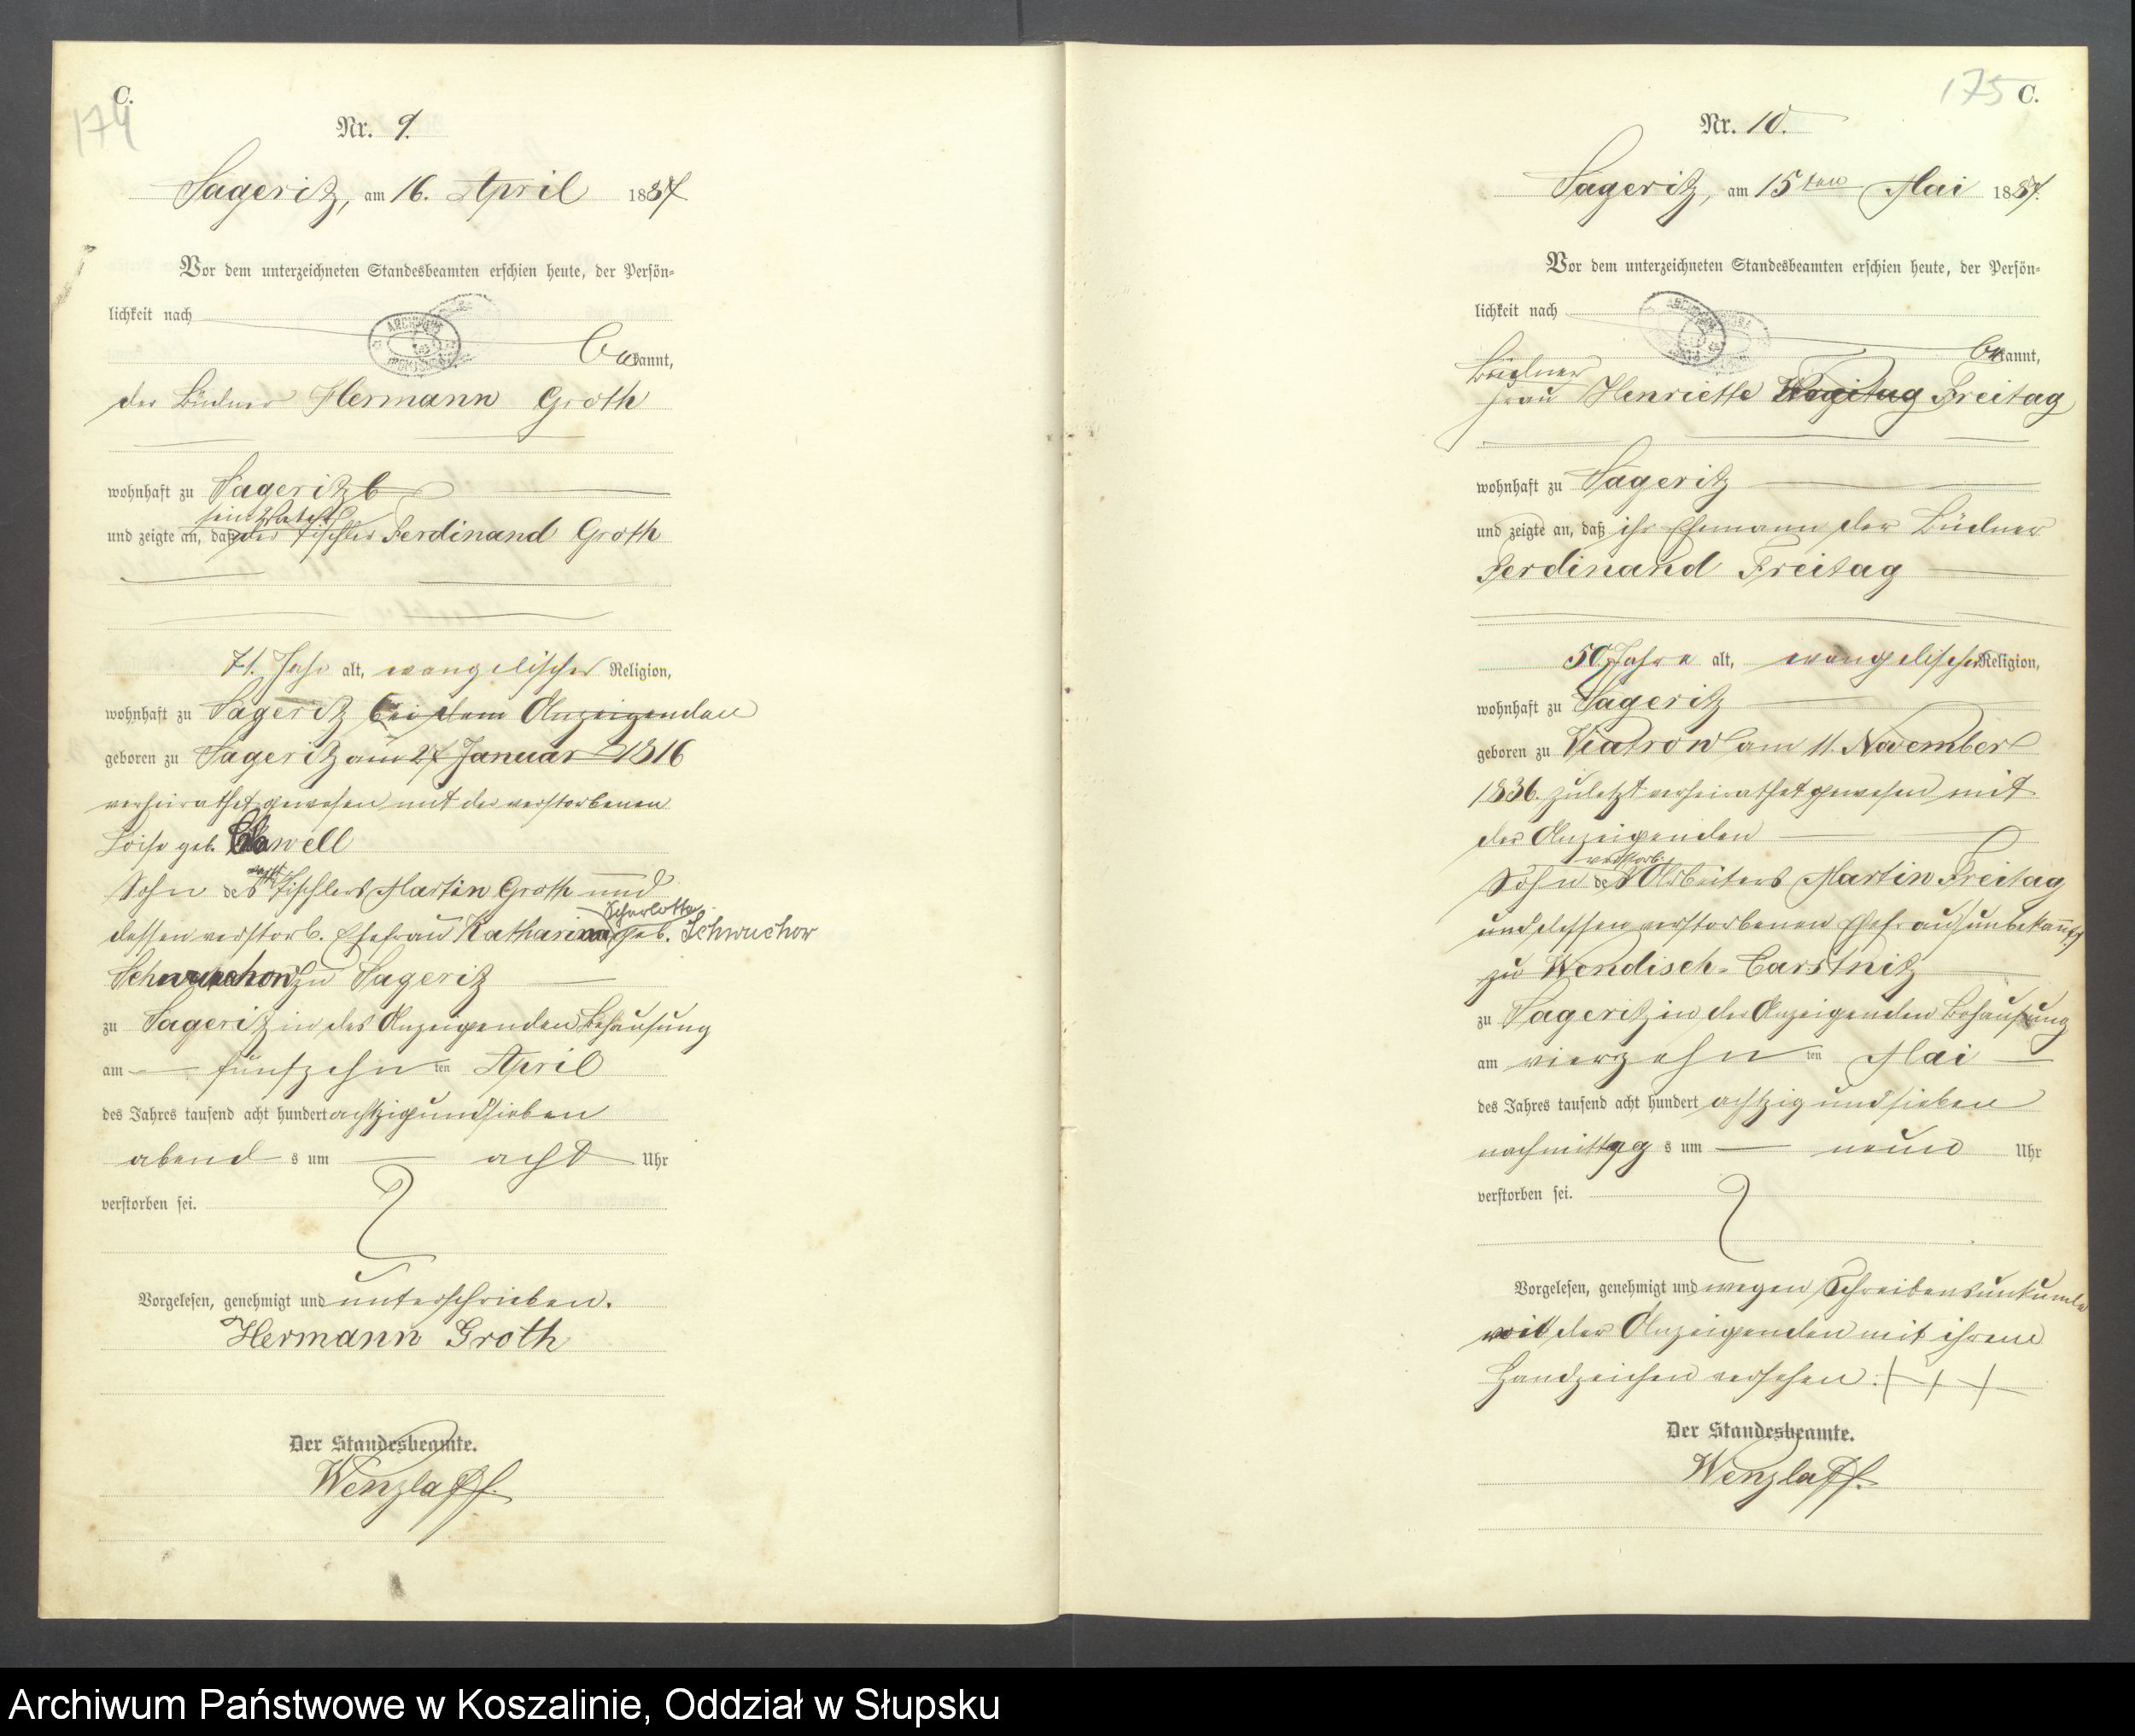 C.
174
Nr. 9.
Sageritz, am 16. April 1887
Vor dem unterzeichneten Standesbeamten erschien heute, der Persön=
lichkeit nach
bekannt,
der Büdner Hermann Groth
wohnhaft zu Sageritz
sein Vater
und zeigte an, daß der Tischler Ferdinand Groth
71. Jahr alt, evangelischer Religion,
wohnhaft zu Sageritz bei dem Anzeigenden
geboren zu Sageritz am 27 Januar 1816
verheirathet gewesen mit der verstorbenen
Loise geb. well
Sohn des Tischlers Martin Groth und
Scharlotte
dessen verstorb. Ehefrau Katharina geb. Schwuchow
Schwuchow zu Sageritz
zu Sageritz in des Anzeigenden Behausung
am fünfzehn ten April
des Jahres tausend acht hundert achtzig und sieben
abend s um acht Uhr
verstorben sei.
Vorgelesen, genehmigt und unterschrieben.
Hermann Groth
Der Standesbeamte.
Wenzlaff.
175 C.
Nr. 10.
Sageritz, am 15ten Mai 1887.
Vor dem unterzeichneten Standesbeamten erschien heute, der Persön=
lichkeit nach
bekannt,
Büdner
frau Henriette Freitag
wohnhaft zu Sageritz
und zeigte an, daß ihr Ehemann der Büdner
Ferdinand Freitag
50 Jahre alt, evangelischer Religion,
wohnhaft zu Sageritz
geboren zu Viatrow am 11. November
1836. zuletzt verheirathet gewesen mit
der Anzeigenden
verstorb.
Sohn des Arbeiters Martin Freitag
und dessen verstorbenen Ehefrau unbekannt
zu Wendisch-Carstnitz
zu Sageritz in der Anzeigenden Behausung
am vierzehn ten Mai
des Jahres tausend acht hundert achtzig und sieben
nachmittag s um neun Uhr
verstorben sei.
Vorgelesen, genehmigt und wegen Schreibensunkunde
von der Anzeigenden mit ihrem
Handzeichen versehen. + + +
Der Standesbeamte.
Wenzlaff.
Archiwum Państwowe w Koszalinie, Oddział w Słupsku